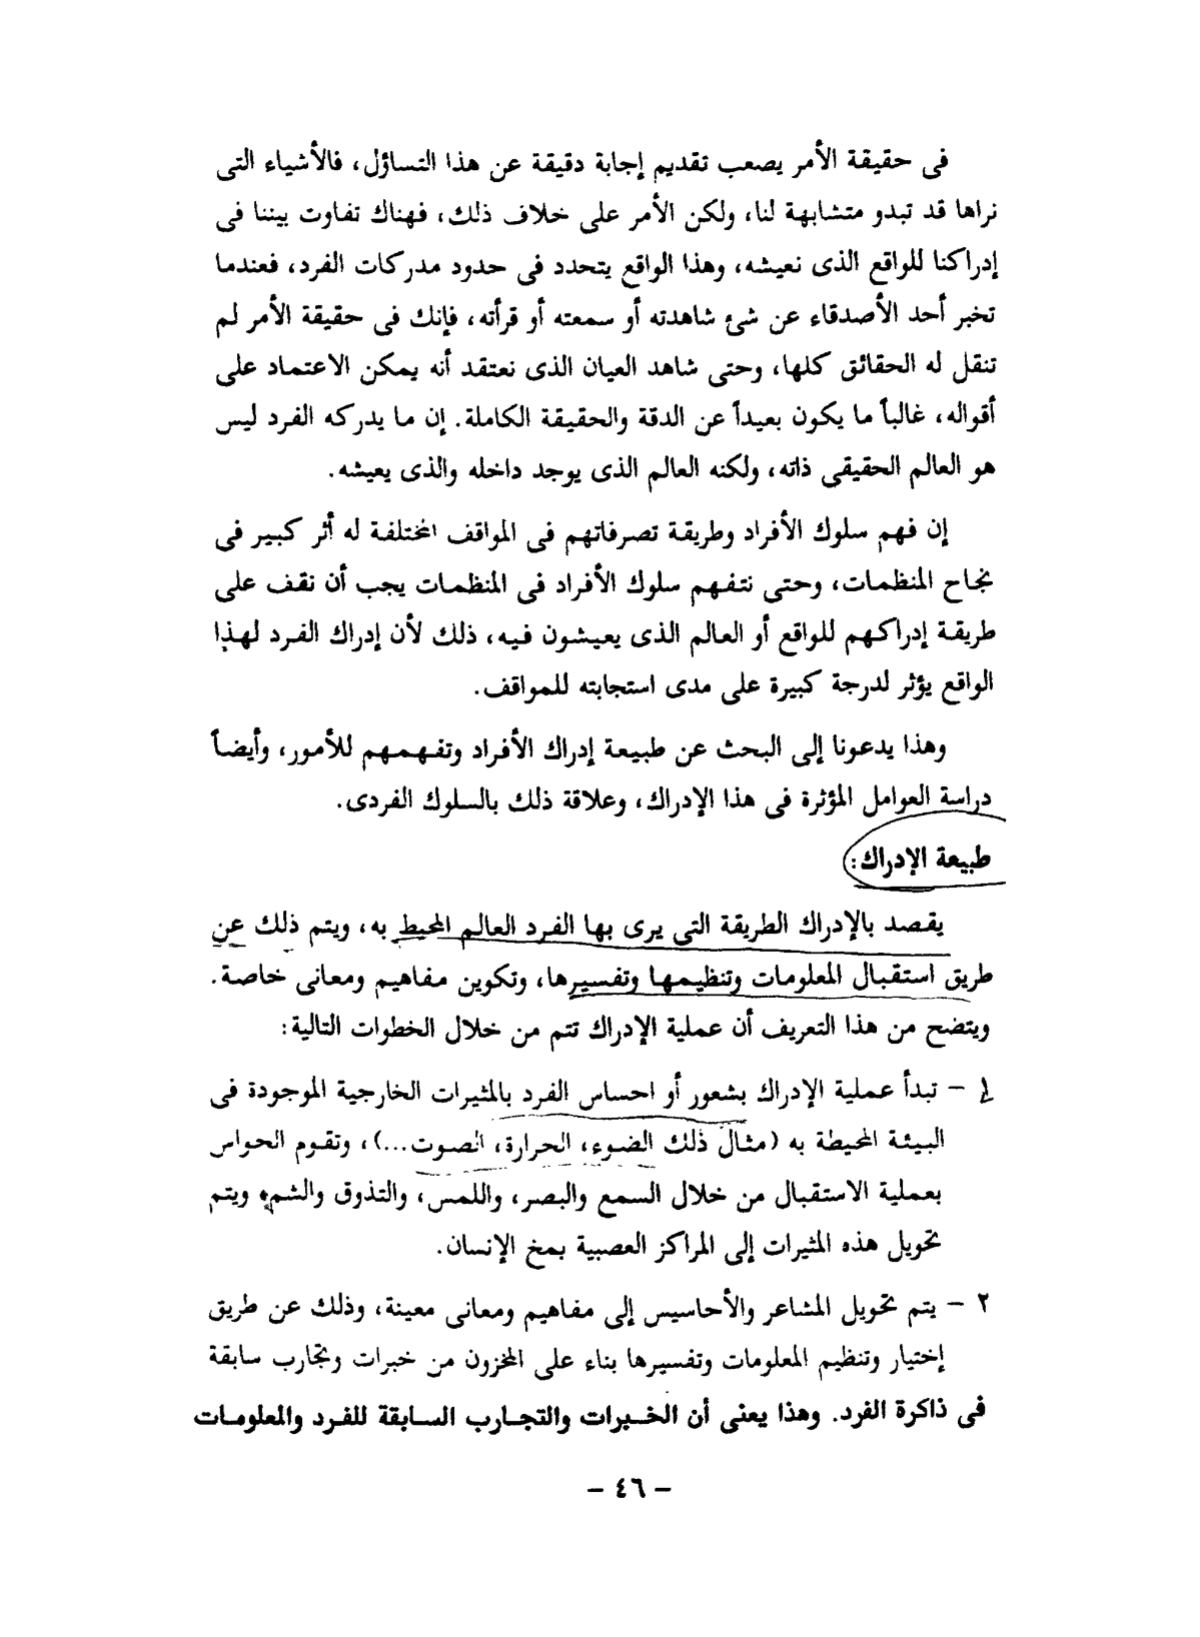 فى حقيقة الأمر يصعب تقديم إجابة دقيقة عن هذا التساؤل، فالأشياء التى
نراها قد تبدو متشابهة لنا، ولكن الأمر على خلاف ذلك، فهناك تفاوت بيننا فى
إدراكنا للواقع الذى نعيشه، وهذا الواقع يتحدد فى حدود مدركات الفرد، فعندما
تخبر أحد الأصدقاء عن شئ شاهدته أو سمعته أو قرأته، فإنك فى حقيقة الأمر لم
تنقل له الحقائق كلها، وحتى شاهد العيان الذى نعتقد أنه يمكن الاعتماد على
أقواله، غالباً ما يكون بعيداً عن الدقة والحقيقة الكاملة. إن ما يدركه الفرد ليس
هو العالم الحقيقى ذاته، ولكنه العالم الذى يوجد داخله والذى يعيشه.
إن فهم سلوك الأفراد وطريقة تصرفاتهم فى المواقف المختلفة له أثر كبير فى
نجاح المنظمات، وحتى نتفهم سلوك الأفراد فى المنظمات يجب أن نقف على
طريقة إدراكهم للواقع أو العالم الذى يعيشون فيه، ذلك لأن إدراك الفرد لهذا
الواقع يؤثر لدرجة كبيرة على مدى استجابته للمواقف.
وهذا يدعونا إلى البحث عن طبيعة إدراك الأفراد وتفهمهم للأمور، وأيضاً
دراسة العوامل المؤثرة فى هذا الإدراك، وعلاقة ذلك بالسلوك الفردى.
طبيعة الإدراك:
يقصد بالإدراك الطريقة التى يرى بها الفرد العالم المحيط به، ويتم ذلك عن
طريق استقبال المعلومات وتنظيمها وتفسيرها، وتكوين مفاهيم ومعانى خاصة.
ويتضح من هذا التعريف أن عملية الإدراك تتم من خلال الخطوات التالية:
١ - تبدأ عملية الإدراك بشعور أو احساس الفرد بالمثيرات الخارجية الموجودة فى
البيئة المحيطة به (مثال ذلك الضوء، الحرارة، الصوت...)، وتقوم الحواس
بعملية الاستقبال من خلال السمع والبصر، واللمس، والتذوق والشم، ويتم
تحويل هذه المثيرات إلى المراكز العصبية بمخ الإنسان.
٢ - يتم تحويل المشاعر والأحاسيس إلى مفاهيم ومعانى معينة، وذلك عن طريق
إختيار وتنظيم المعلومات وتفسيرها بناء على المخزون من خبرات وتجارب سابقة
فى ذاكرة الفرد. وهذا يعنى أن الخبرات والتجارب السابقة للفرد والمعلومات
- ٤٦ -